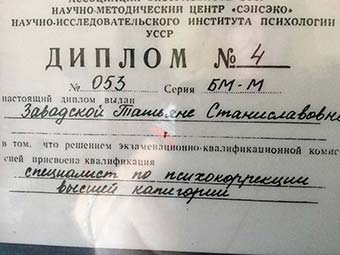 НАУЧНО-МЕТОДИЧЕСКИЙ ЦЕНТР «СЭНСЭКО»
НАУЧНО-ИССЛЕДОВАТЕЛЬСКОГО ИНСТИТУТА ПСИХОЛОГИИ
УССР
ДИПЛОМ №4
№ 053 Серия БМ-М
настоящий диплом выдан
Завадской Татьяне Станиславовне
в том, что решением экзаменационно-квалификационной комис
сией присвоена квалификация
специалист по психокоррекции
высшей категории